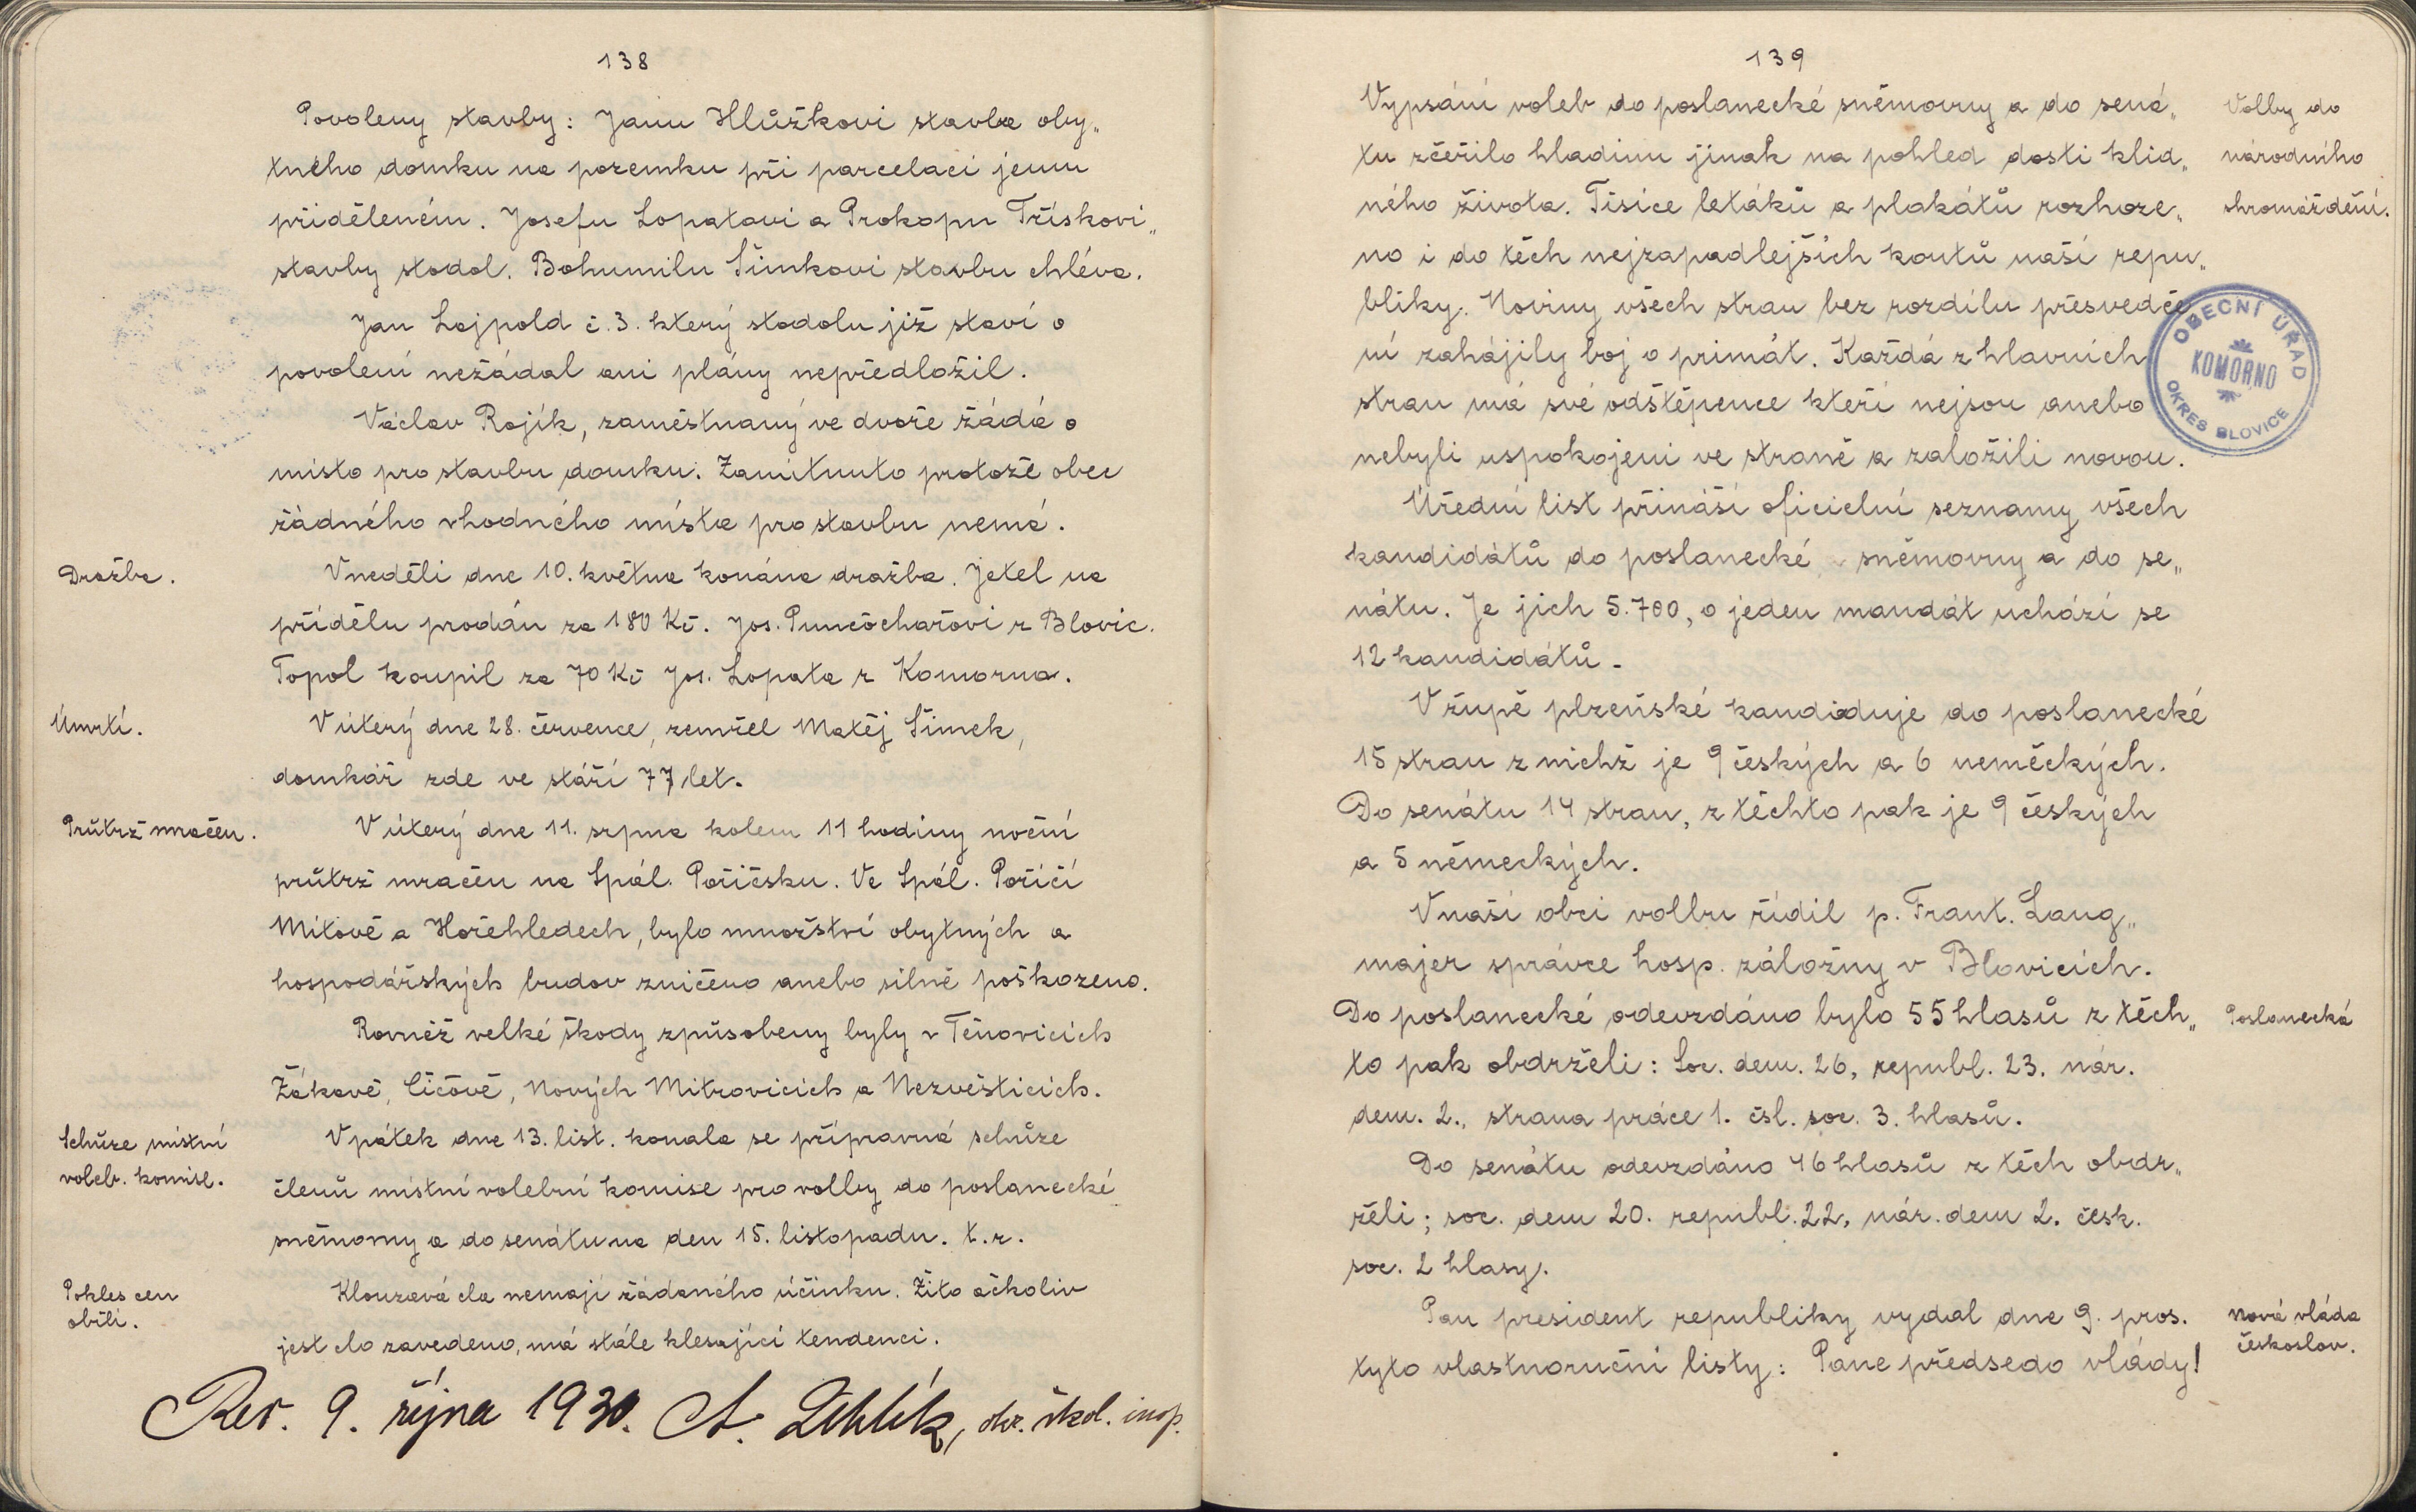 138
Povoleny stavby: Janu Hlůžkovi stavba oby„
tného domku na pozemku při parcelaci jemu
přiděleném. Josefu Lopatovi a Prokopu Třískovi„
stavby stodol. Bohumilu Šimkovi stavbu chléva.
Jan Lajpold č. 3. který stodolu již staví o
povolení nežádal ani plány nepředložil.
Václav Rojík, zaměstnaný ve dvoře žádá o
místo pro stavbu domku. Zamítnuto protože obec
žádného vhodného místa pro stavbu nemá.
Dražba.
V neděli dne 10. května konána dražba. Jetel na
přídělu prodán za 180 Kč. Jos. Punčochařovi z Blovic.
Topol koupil za 70 Kč Jos. Lopata z Komorna.
Úmrtí.
V úterý dne 28. července, zemřel Matěj Šimek,
domkář zde ve stáří 77 let.
Průtrž mračen.
V úterý dne 11. srpna kolem 11 hodiny noční
průtrž mračen na Spál. Poříčsku. Ve Spál. Poříčí
Mítově a Hořehledech, bylo množství obytných a
hospodářských budov zničeno anebo silně poškozeno.
Rovněž velké škody způsobeny byly v Těnovicích
Žákavě, Číčově, Nových Mitrovicích a Nezvěsticích.
Schůze místní
voleb. komise.
V pátek dne 13. list. konala se přípravná schůze
členů místní volební komise pro volby do poslanecké
sněmovny a do senátu na den 15. listopadu. t.r.
Pokles cen
obilí.
Klouzavá cla nemají žádaného účinku. Žito ačkoliv
jest clo zavedeno, má stále klesající tendenci.
Rev. 9. října 1930. okr. škol. insp.
139
Volby do
národního
shromáždění.
Vypsání voleb do poslanecké sněmovny a do sená„
tu zčeřilo hladinu jinak na pohled dosti klid„
ného života. Tisíce letáků a plakátů rozhoze„
no i do těch nejzapadlejších koutů naší repu„
bliky. Noviny všech stran bez rozdílu přesvedče
ní zahájily boj o primát. Každá z hlavních
stran má své odštěpence kteří nejsou anebo
nebyli uspokojeni ve straně a založili novou.
OBECNÍ ÚŘAD
KOMORNO
OKRES BLOVICE
Úřední list přináší oficielní seznamy všech
kandidátů do poslanecké sněmovny a do se„
nátu. Je jich 5.780, o jeden mandát uchází se
12 kandidátů.
V župě plzeňské kandiduje do poslanecké
15 stran z nichž je 9 českých a 6 neměckých.
Do senátu 14 stran, z těchto pak je 9 českých
a 5 německých.
V naší obci volbu řídil p. Frant. Lang„
majer správce hosp. záložny v Blovicích.
Poslanecká
Do poslanecké odevzdáno bylo 55 hlasů z těch„
to pak obdrželi: Soc. dem. 26, republ. 23. nár.
dem. 2., strana práce 1. čsl. soc. 3. hlasů.
Do senátu odevzdáno 46 hlasů z těch obdr„
želi; soc. dem 20. republ. 22, nár. dem 2. česk.
soc. 2 hlasy.
Nová vláda
českoslov.
Pan president republiky vydal dne 9. pros.
tyto vlastnoruční listy: Pane předsedo vlády!